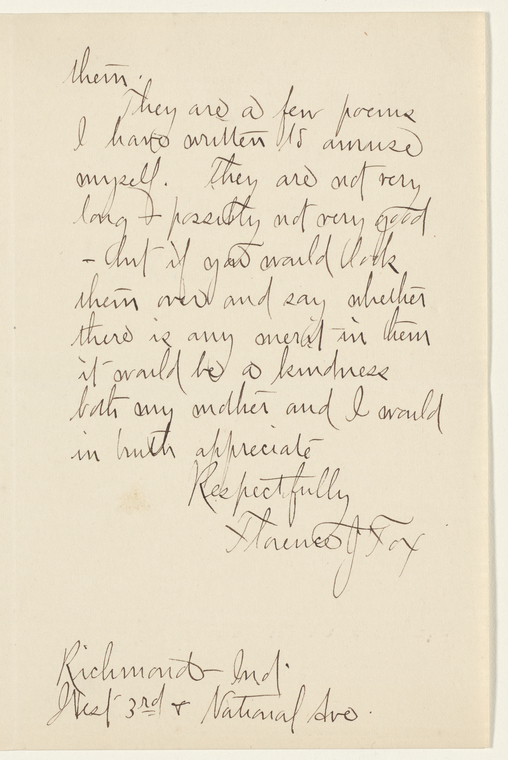 them.
They are a few poems
I have written to amuse
myself. They are not very
long & possibly not very good
- but if you would look
them over and say whether
there is any merit in them
it would be a kindness
both my mother and I would
in truth appreciate
Respectfully
Florence J Fox
Richmond - Ind.
West 3rd & National Ave.